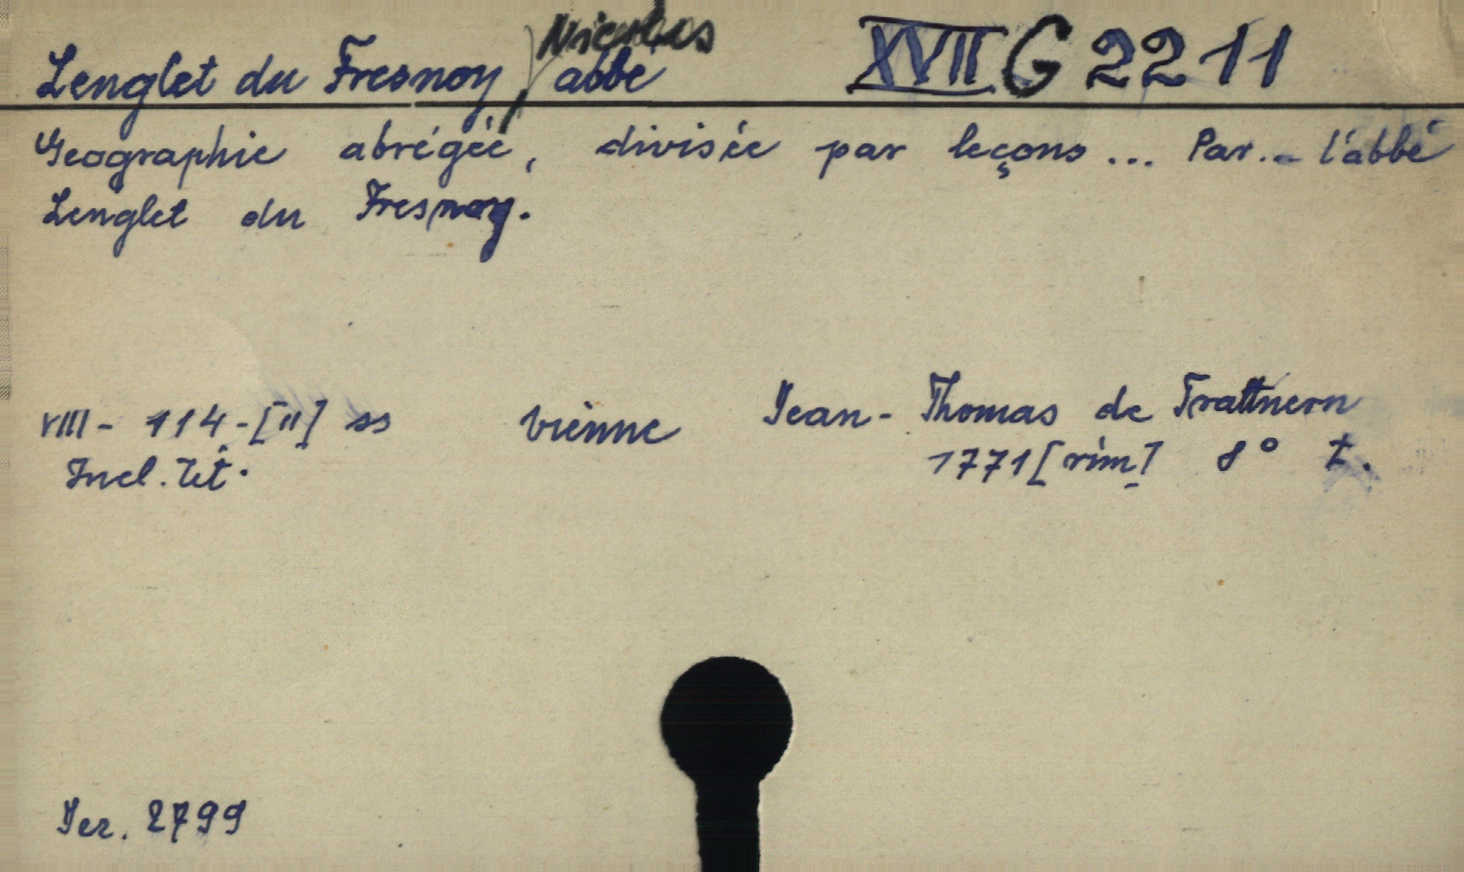 Lenglet du Fresnoy, Nicolas abbé XVII G 2211
Geographie abrégée, divisée par leçons... Par... l'abbé
Lenglet du Fresnoy.
VIII - 114 - [11] ss Vienne Jean - Thomas de Trattnern
Incl. tit. 1771 [rim] 8° t.
Jez. 2799